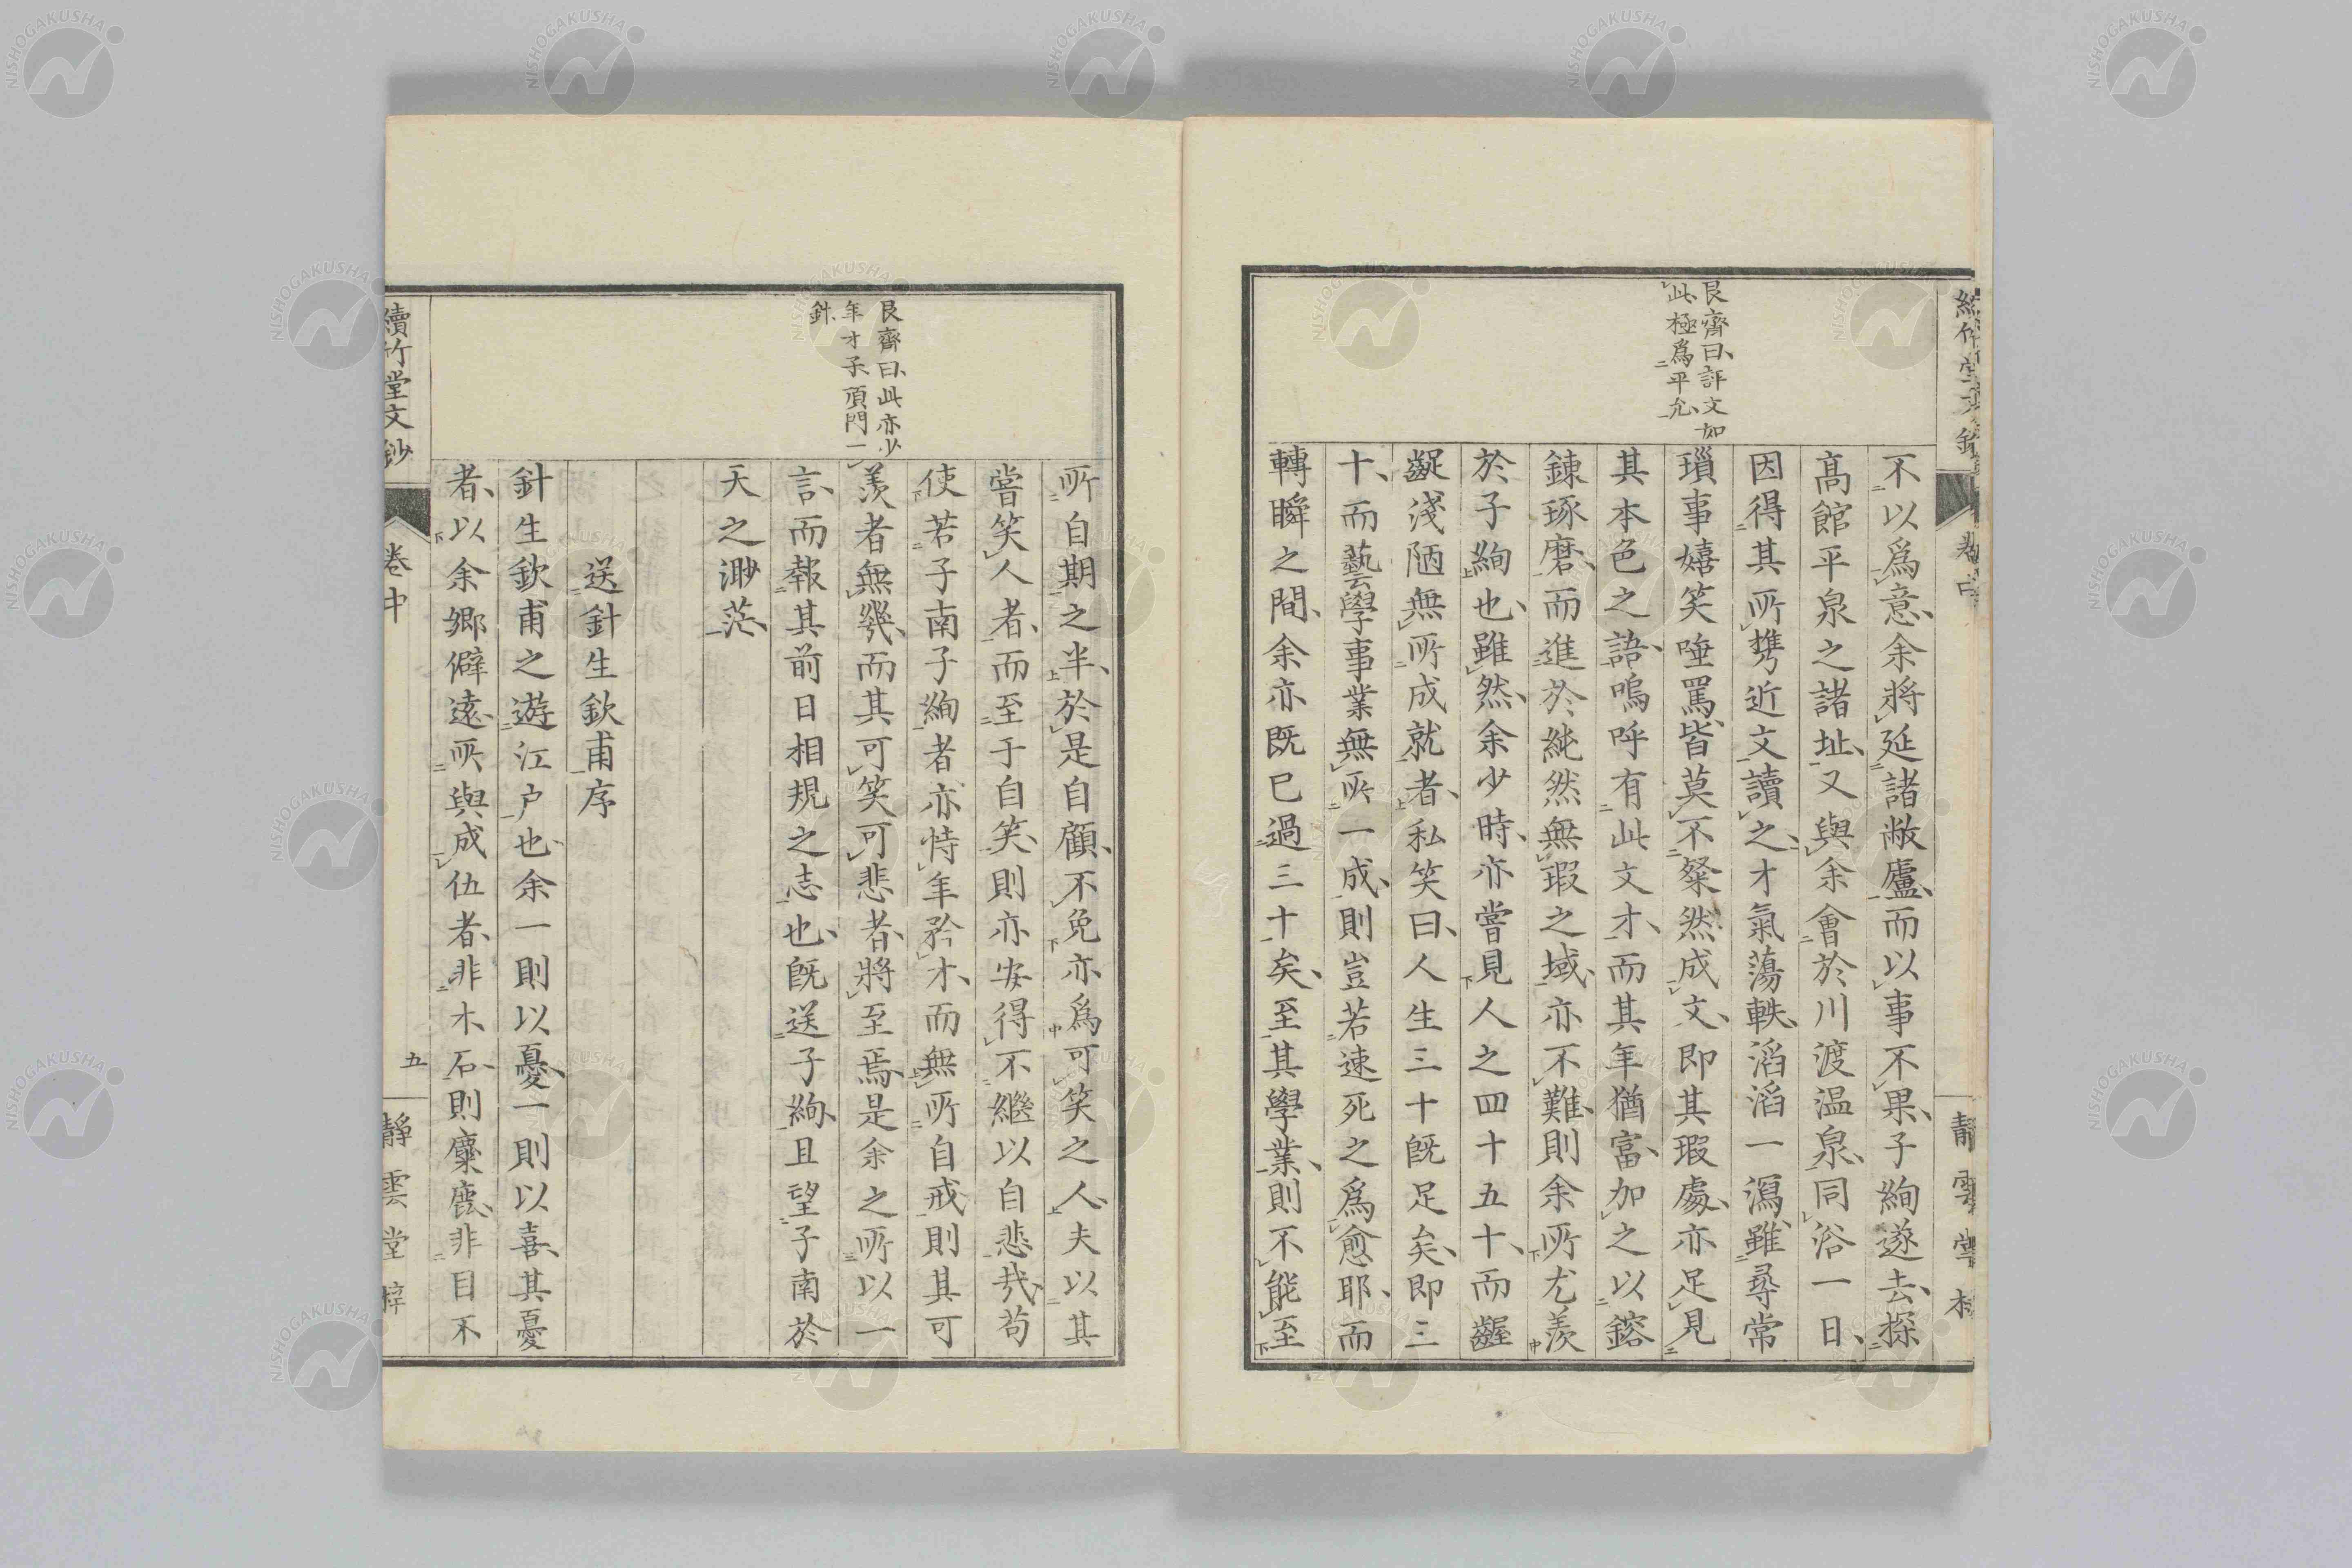 艮齋曰、評文如
此、極爲平允、
不以爲意、余將延諸敝廬、而以事不果、子絢遂去、探
高館平泉之諸址、又與余會於川渡温泉、同浴一日、
因得其所携近文讀之、才氣蕩軼、滔滔一瀉、雖尋常
瑣事嬉笑唾罵、皆莫不粲然成文、即其瑕處、亦足見
其本色之語、嗚呼有此文才、而其年猶富、加之以鎔
鍊琢磨、而進於純然無瑕之域、亦不難、則余所尤羨
於子絢也、雖然、余少時、亦嘗見人之四十五十、而齷
齪淺陋無所成就者、私笑曰、人生三十既足矣、即三
十、而藝學事業無所一成、則豈若速死之爲愈耶、而
轉瞬之間、余亦既已過三十矣、至其學業、則不能至
艮齋曰、此亦少
年才子、頂門一
針、
所自期之半、於是自顧、不免亦爲可笑之人、夫以其
嘗笑人者、而至于自笑、則亦安得不繼以自悲哉、苟
使若子南子絢者、亦恃年矜才、而無所自戒、則其可
羨者無幾、而其可笑可悲者、將至焉、是余之所以一
言、而報其前日相規之志也、既送子絢、且望子南於
天之渺茫、
送針生欽甫序
針生欽甫之遊江户也、余一則以憂、一則以喜、其憂
者、以余郷僻遠、所與成伍者、非木石、則麋鹿、非目不
續竹堂文鈔
卷中
五
靜雲堂梓